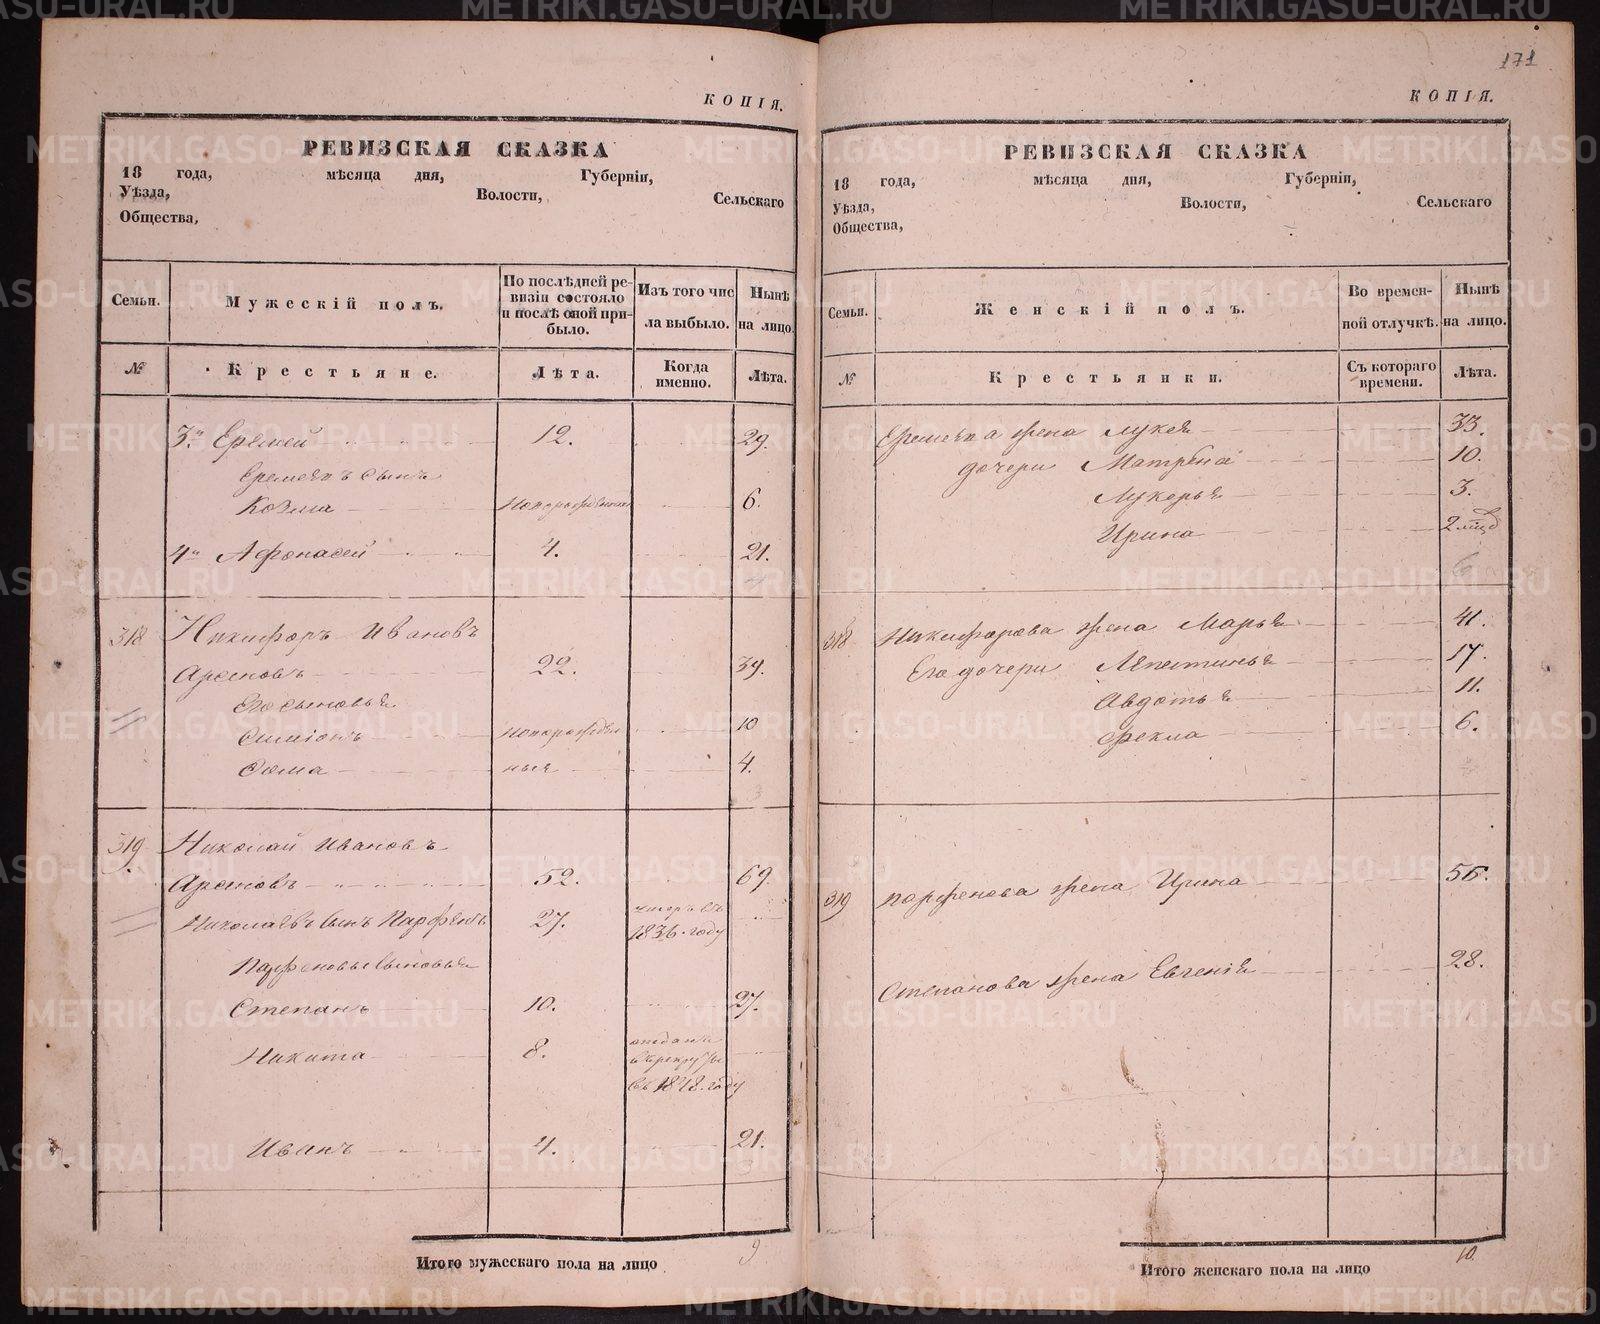 171
КОПІЯ.
РЕВИЗСКАЯ СКАЗКА
18 года, мѣсяца дня, Губерніи,
Уѣзда, Волости, Сельскаго
Общества,
Семьи. Мужескій полъ. По послѣдней ревизіи состояло и послѣ оной прибыло. Изъ того числа выбыло. Нынѣ на лицо.
№ Крестьяне. Лѣта. Когда именно. Лѣта.
3й Еремей 12. 29.
Еремеявъ сынъ
Козма Новорожденный 6.
4й Афонасей 4. 21.
318 Никифоръ Ивановъ
Арсеновъ 22. 39.
Его сыновья
Симіонъ новорожден 10
Фома ныя 4.
3
319 Николай Ивановъ
Арсеновъ 52. 69.
Николаевъ сынъ Парфенъ 27. умеръ въ 1836. году
Парфеновы сыновья
Степанъ 10. 27.
Никита 8. отданъ въ рекруты въ 1848. году
Иванъ 4. 21.
Итого мужескаго пола на лицо 9
КОПІЯ.
РЕВИЗСКАЯ СКАЗКА
18 года, мѣсяца дня, Губерніи,
Уѣзда, Волости, Сельскаго
Общества,
Семьи. Женскій полъ. Во временной отлучкѣ. Нынѣ на лицо.
№ Крестьянки. Съ котораго времени. Лѣта.
Еремеява жена Лукея 33.
дочери Матрена 10.
Лукерья 3.
Ирина 2 мѣс
318 Никифорова жена Марья 41.
Его дочери Лепестинья 17.
Авдотья 11.
Фекла 6.
319 Парфенова жена Ирина 55.
Степанова жена Евгенія 28.
Итого женскаго пола на лицо 10.
METRIKI.GASO-URAL.RU